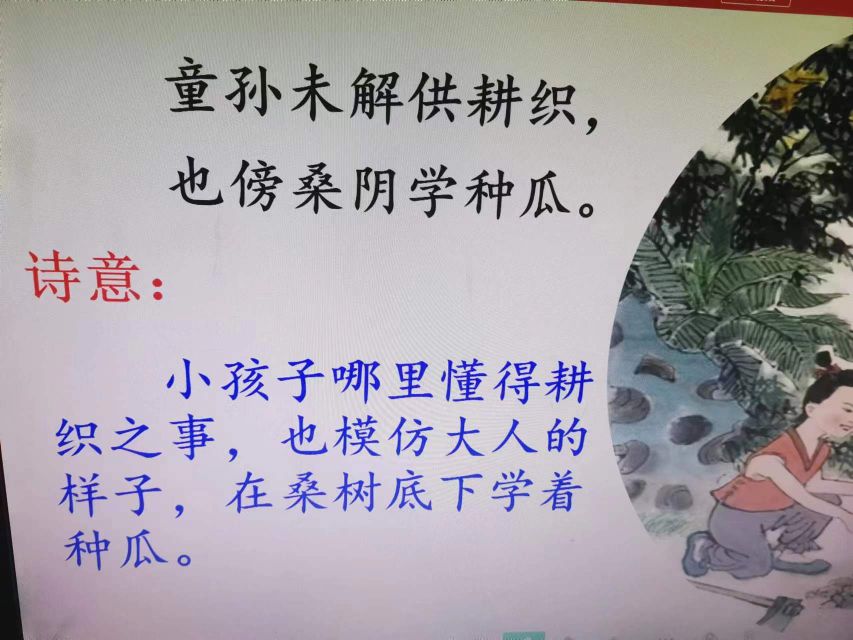 童孙未解供耕织，
也傍桑阴学种瓜。
诗意：
小孩子哪里懂得耕
织之事，也模仿大人的
样子，在桑树底下学着
种瓜。